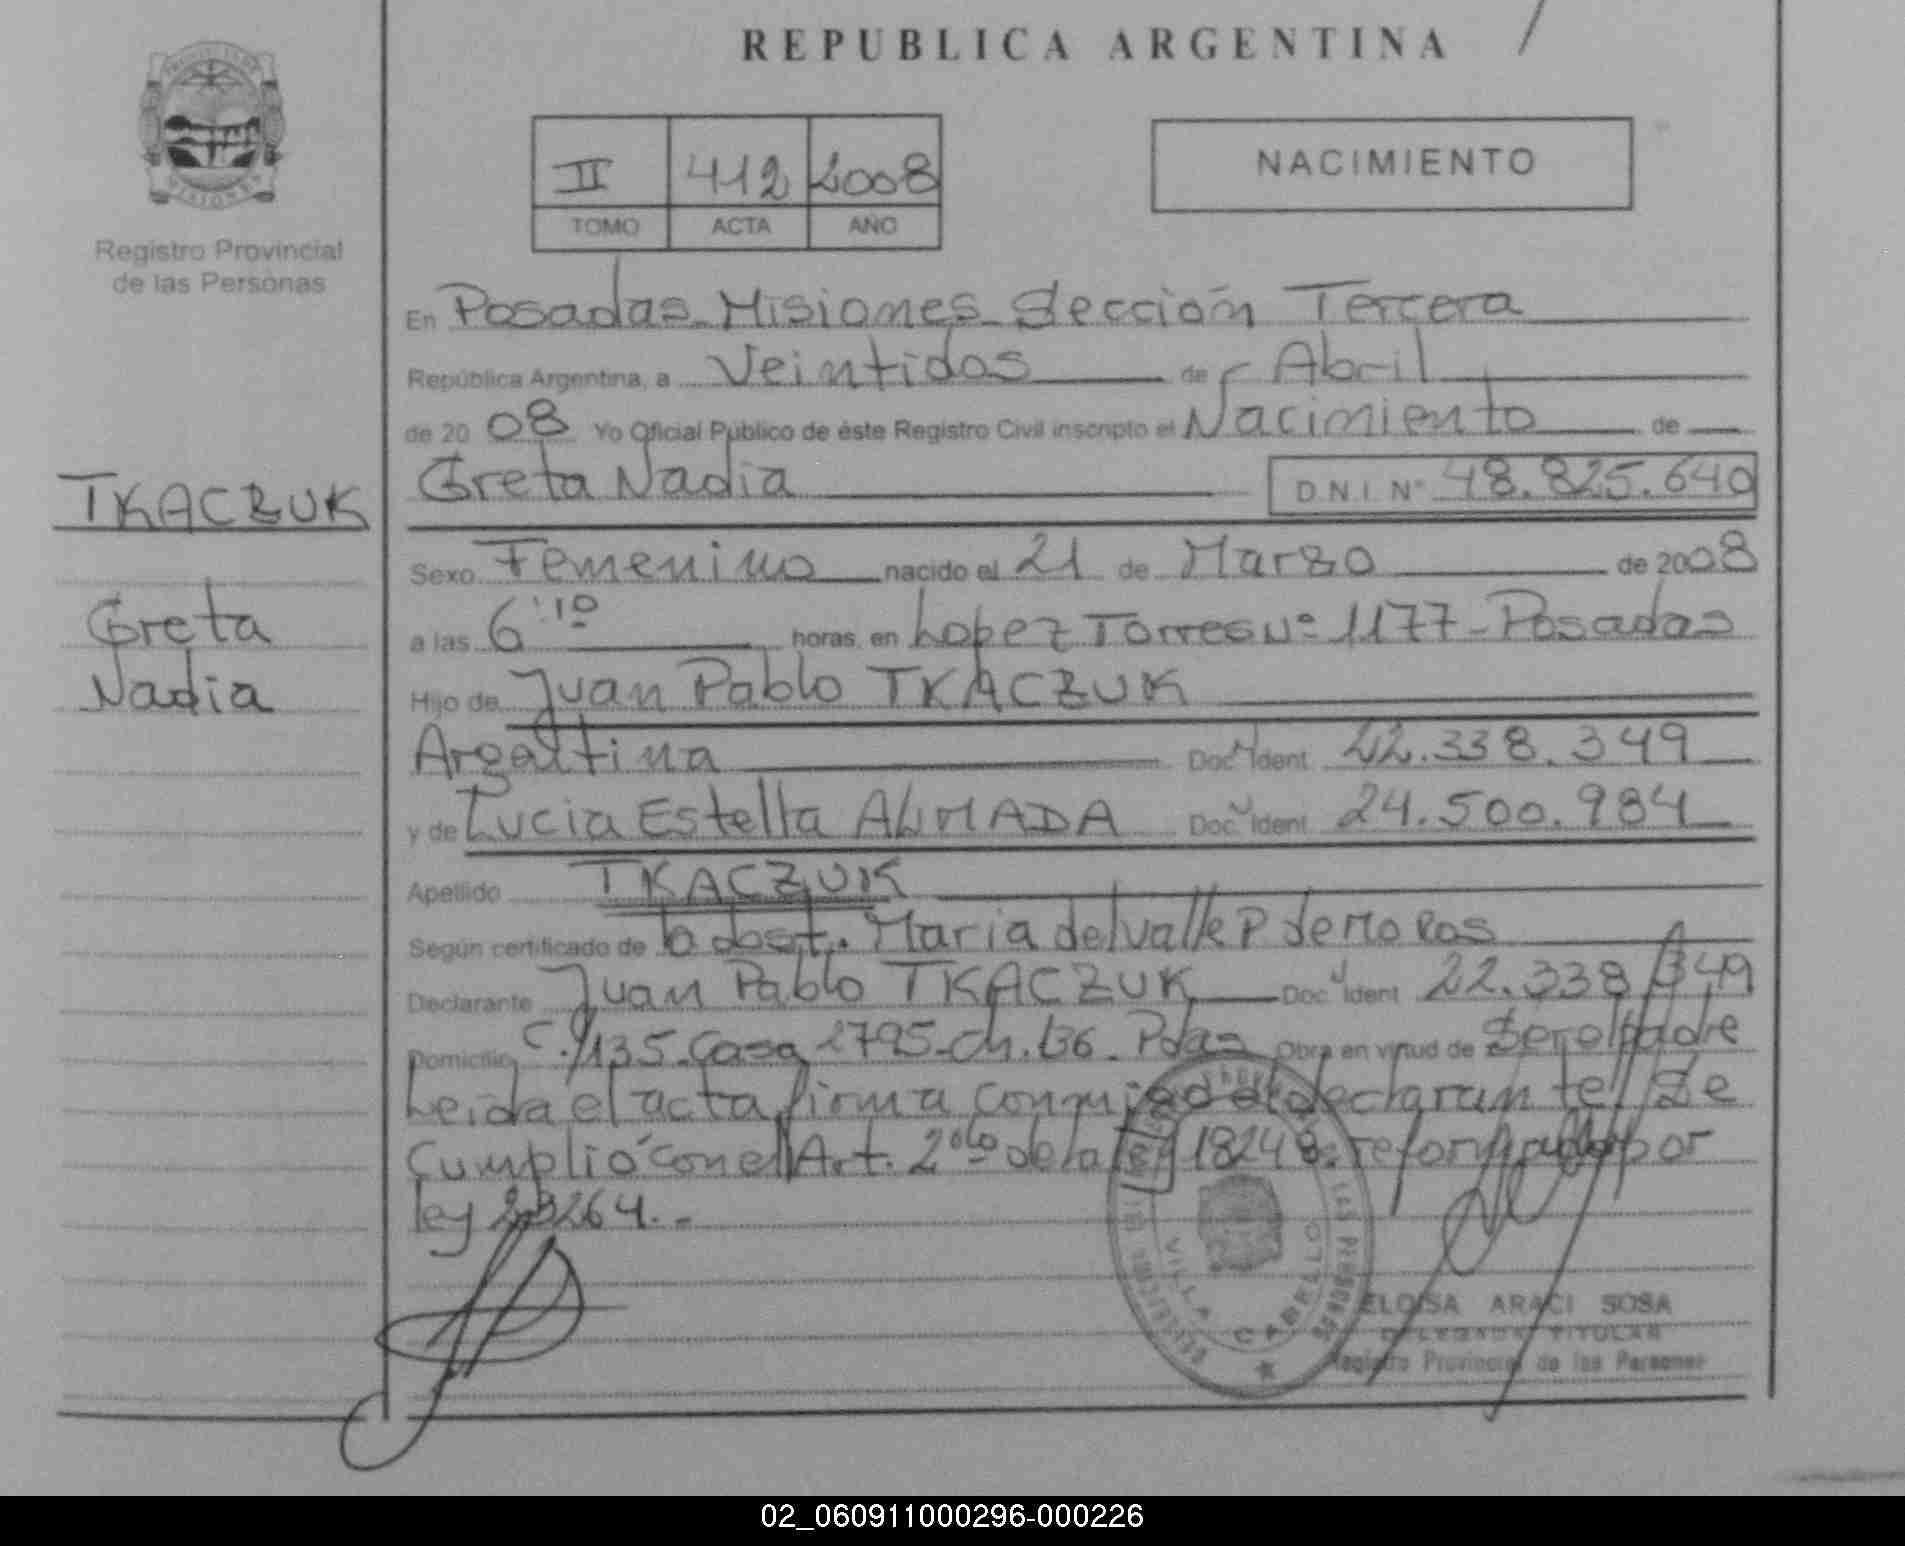 REPUBLICA ARGENTINA
II 412 2008
TOMO ACTA AÑO
NACIMIENTO
PROVINCIA DE MISIONES
Registro Provincial
de las Personas
TKACZUK
Greta
Nadia
En Posadas Misiones Sección Tercera
República Argentina, a Veintidos de Abril
de 2008 Yo Oficial Público de éste Registro Civil inscripto el Nacimiento de
Greta Nadia D.N.I. Nº 48.825.640
Sexo Femenino nacido el 21 de Marzo de 2008
a las 6:10 horas, en Lopez Torres Nº 1177-Posadas
Hijo de Juan Pablo TKACZUK
Argentina Doc. Ident 22.338.349
y de Lucia Estella ALMADA Doc. Ident 24.500.984
Apellido TKACZUK
Según certificado de la obst. Maria del valle P de
Declarante Juan Pablo TKACZUK Doc. Ident 22.338.349
Domicilio C. 135-Casa 2795-Ch. Pdas Obra en virtud de Ser el padre
Leida el acta firma conmigo el declarante. Se
Cumplió con el Art. 2do de la ley 18248 reformado por
ley 23264.-
VILLA CABELLO
ELOISA ARACI SOSA
DELEGADA TITULAR
Registro Provincial de las Personas
02_060911000296-000226